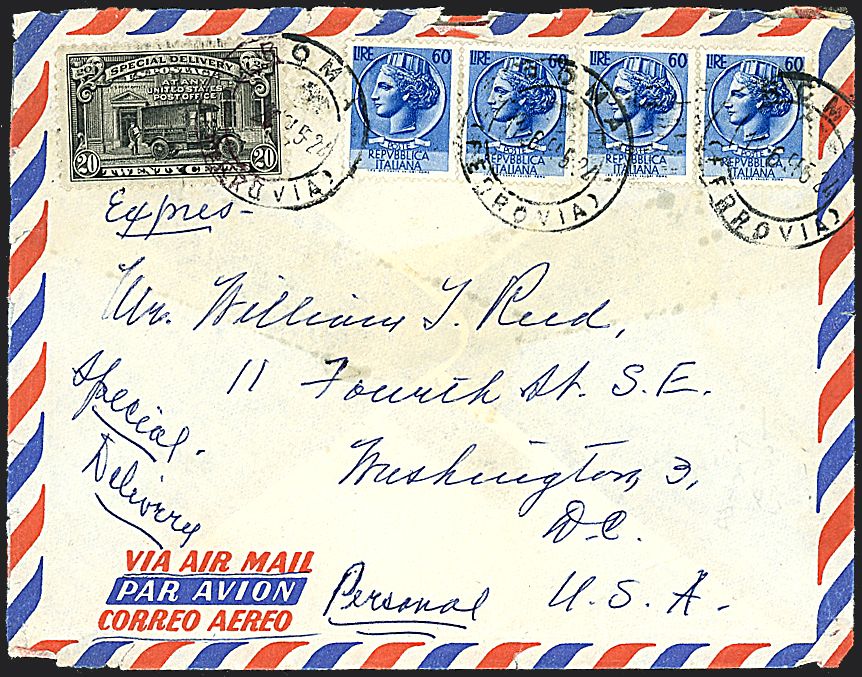 SPECIAL DELIVERY
U.S. POSTAGE
AT ANY
UNITED STATES
POST OFFICE
20 20
TWENTY CENTS
LIRE 60
POSTE
REPVBBLICA
ITALIANA
LIRE 60
POSTE
REPVBBLICA
ITALIANA
LIRE 60
POSTE
REPVBBLICA
ITALIANA
LIRE 60
POSTE
REPVBBLICA
ITALIANA
ROMA
(FERROVIA)
ROMA
(FERROVIA)
ROMA
(FERROVIA)
Expres-
Mr. William T. Reed,
11 Fourth St. S.E.
Washington, 3,
D.C.
U.S.A.
Special
Delivery
VIA AIR MAIL
PAR AVION
CORREO AEREO
Personal